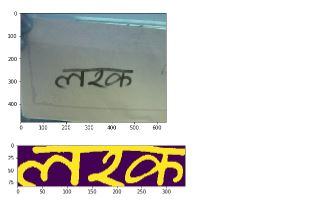 0
100
200
300
400
0 100 200 300 400 500 600
लरक
0
25
50
75
0 50 100 150 200 250 300
लरक